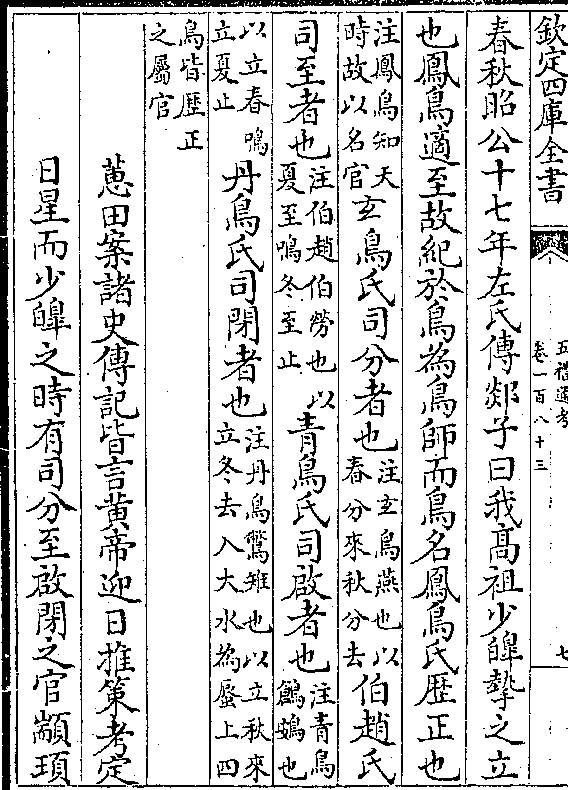 欽定四庫全書
五禮通考
卷一百八十三
七
春秋昭公十七年左氏傳郯子曰我髙祖少皥摯之立
也鳳鳥適至故紀於鳥為鳥師而鳥名鳳鳥氏歴正也
注鳳鳥知天
時故以名官
玄鳥氏司分者也
注玄鳥燕也以
春分來秋分去
伯趙氏
司至者也
注伯趙伯勞也以
夏至鳴冬至止
青鳥氏司啟者也
注青鳥
鶬鴳也
以立春鳴
立夏止
丹鳥氏司閉者也
注丹鳥鷩雉也以立秋來
立冬去入大水為蜃上四
鳥皆歴正
之屬官
蕙田案諸史傳記皆言黄帝迎日推策考定
日星而少皥之時有司分至啟閉之官顓頊